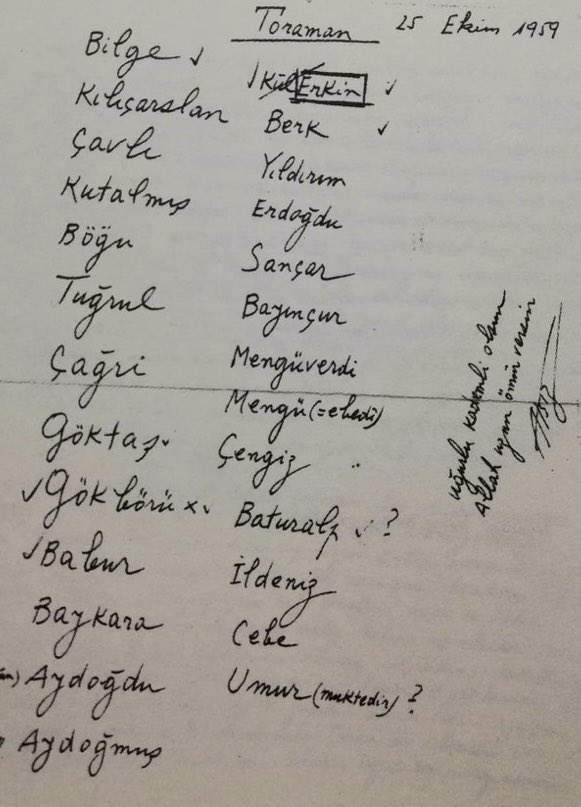 Toraman
25 Ekim 1959
Bilge ✓
Kılıçarslan
Çavlı
Kutalmış
Böğü
Tuğrul
Çağri
Göktaş
✓ Gökbörü x
✓ Babur
Baykara
Aydoğdu
Aydoğmuş
✓ Kül Erkin ✓
Berk ✓
Yıldırım
Erdoğdu
Sançar
Bayınçur
Mengüverdi
Mengü (=ebedî)
Çengiz
Baturalp ✓ ?
İldeniz
Cebe
Umur (muktedir) ?
uğurlu kademli olsun
Allah uzun ömür versin